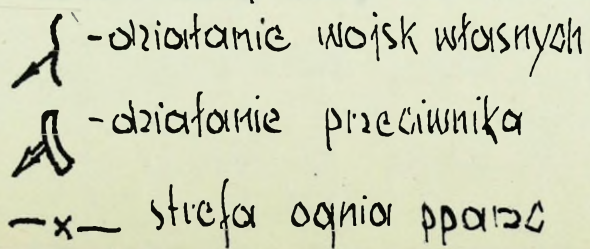 - działanie wojsk własnych
- działanie przeciwnika
strefa ognia ppanc